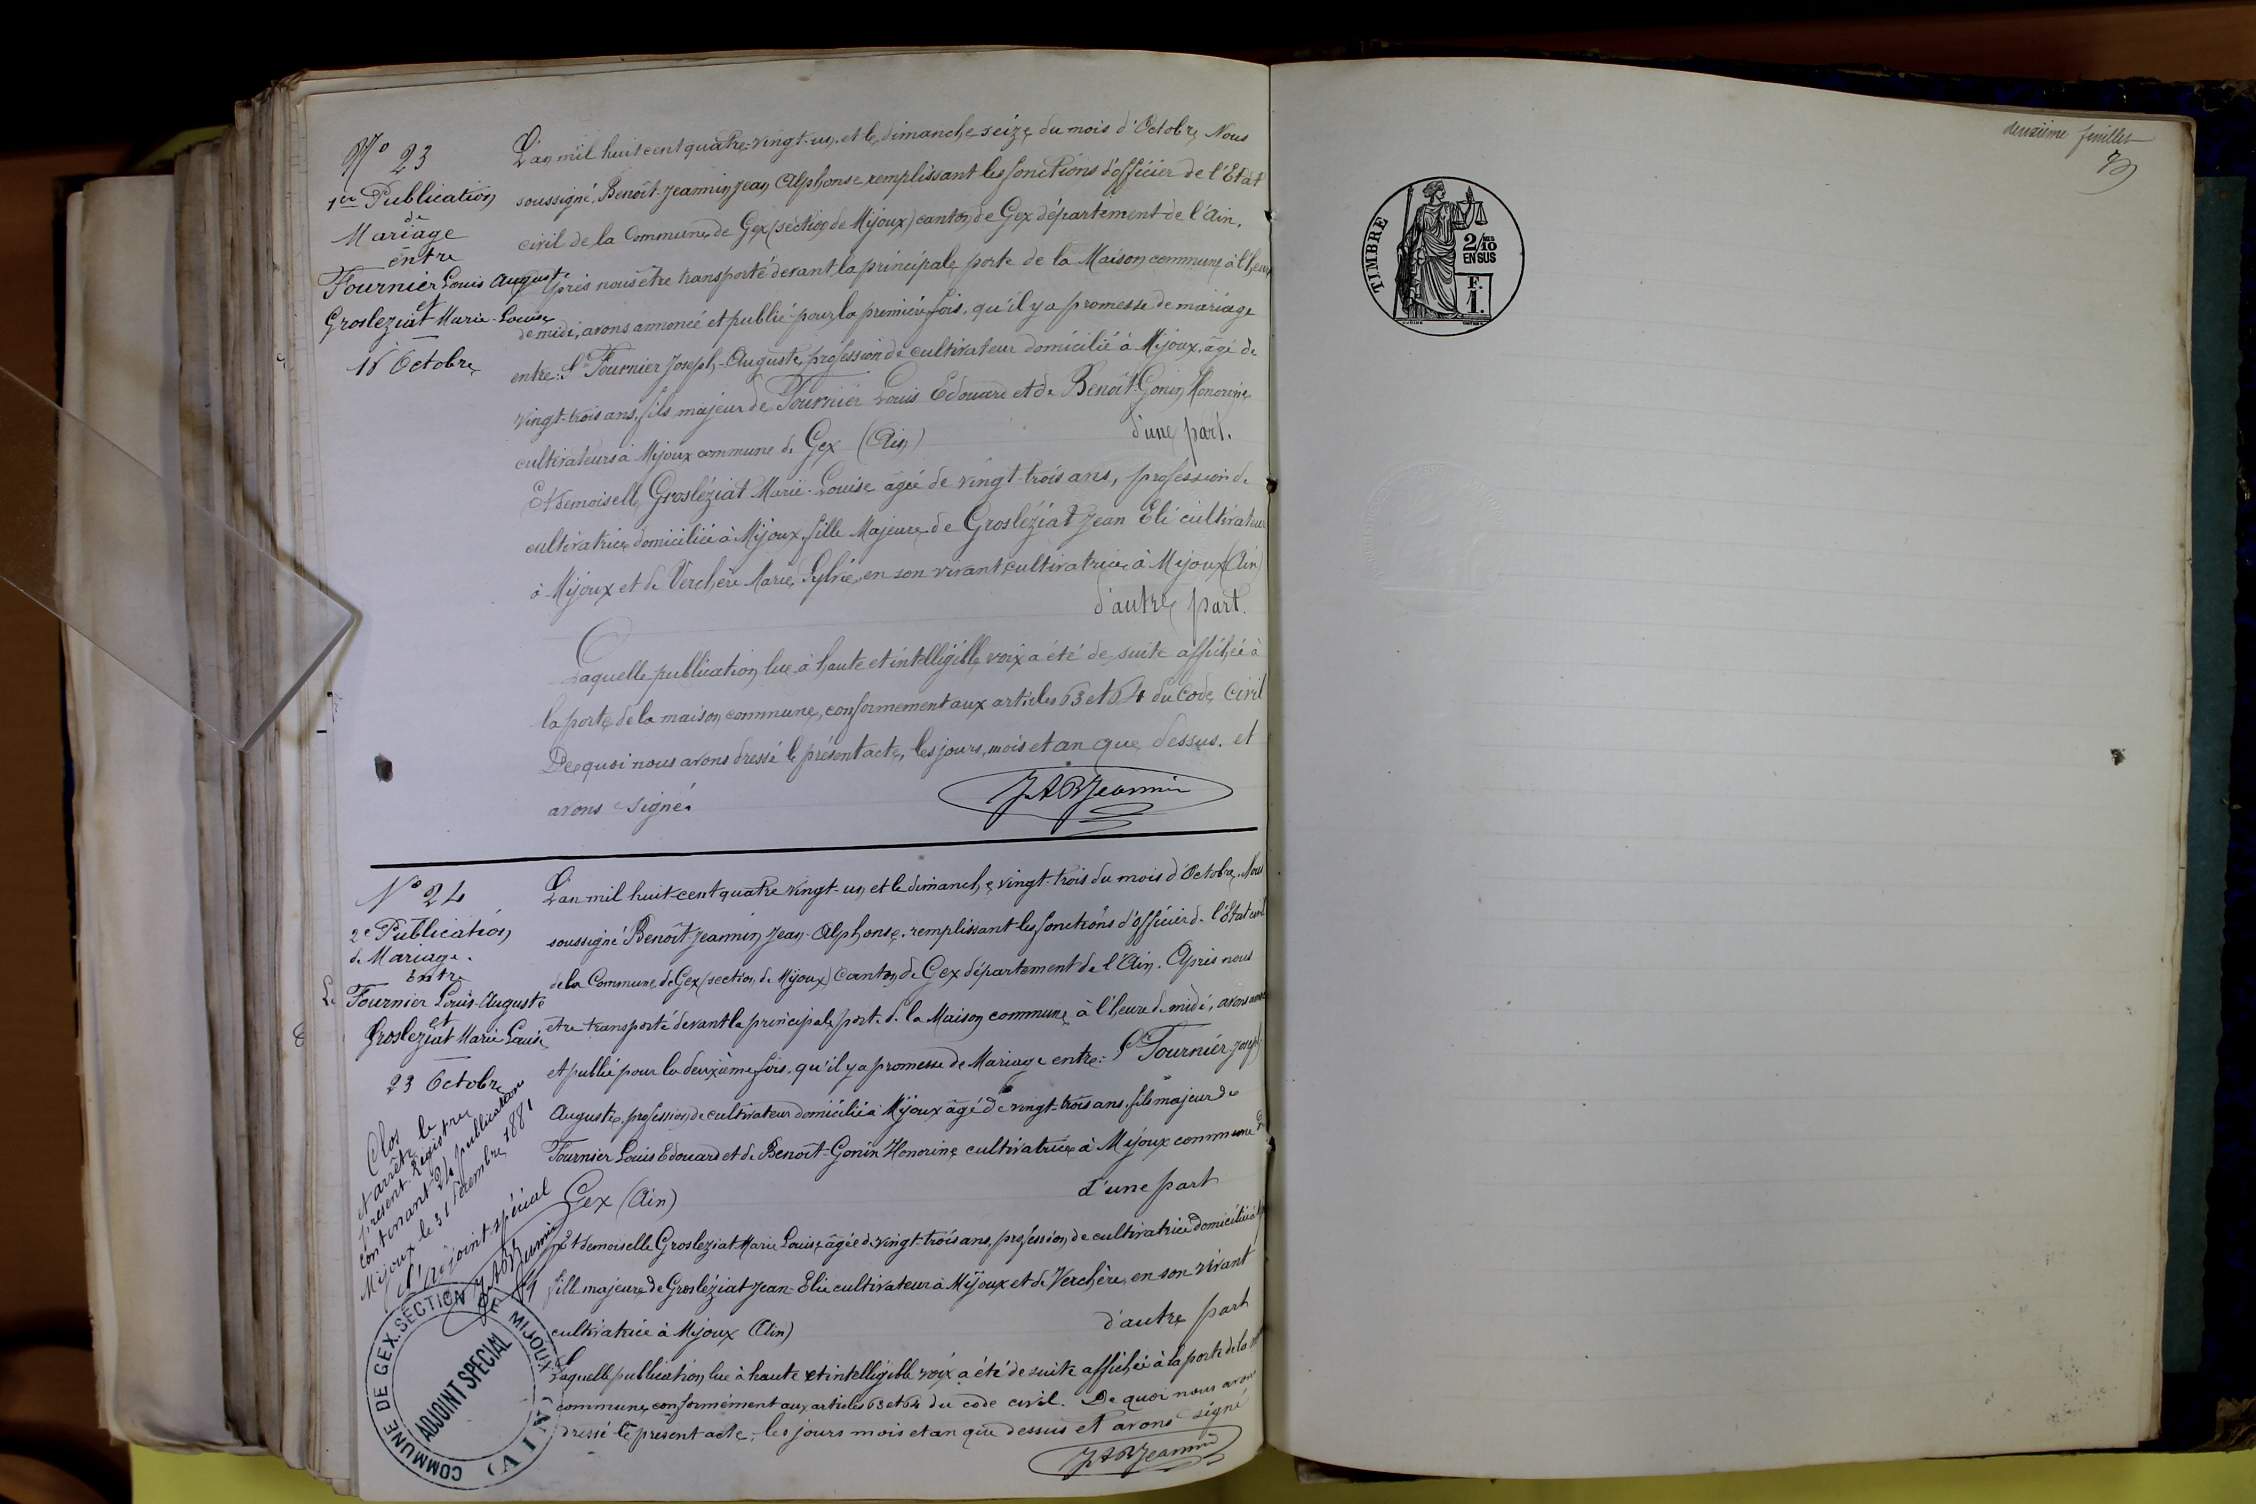 N° 23
1ère Publication
de
Mariage
entre
Fournier Louis Auguste
et
Grosleziat Marie-Louise
16 Octobre
L'an mil huit cent quatre-vingt-un, et le dimanche seize du mois d'Octobre, Nous
soussigné, Benoît-Jeannin Jean Alphonse remplissant les fonctions d'officier de l'Etat
civil de la Commune de Gex (section de Mijoux) canton de Gex département de l'Ain.
Après nous être transporté devant la principale porte de la Maison commune à l'heure
de midi, avons annoncé et publié pour la première fois, qu'il y a promesse de mariage
entre: Sr Fournier Joseph-Auguste, profession de cultivateur domicilié à Mijoux, âgé de
vingt-trois ans, fils majeur de Fournier Louis Edouard et de Benoît-Gonin Honorine
cultivateurs à Mijoux commune de Gex (Ain) d'une part.
Et demoiselle Grosléziat Marie-Louise âgée de vingt-trois ans, profession de
cultivatrice domiciliée à Mijoux, fille Majeure de Grosléziat Jean Eli cultivateur
à Mijoux et de Verchère Marie Sylvie, en son vivant cultivatrice à Mijoux (Ain)
d'autre part.
Laquelle publication lue à haute et intelligible voix a été de suite affichée à
la porte de la maison commune, conformement aux articles 63 et 64 du Code Civil
De quoi nous avons dressé le présent acte, les jours, mois et an que dessus. et
avons signé.
JABJeannin
N° 24
2e Publication
de Mariage.
Entre
Fournier Louis-Auguste
et
Grosleziat Marie Louise
23 Octobre
Clos
et arrêté le
présent Registre
contenant 24 publications
Mijoux le 31 Décembre 1881
L'Adjoint spécial
JABJeannin
COMMUNE DE GEX. SECTION DE MIJOUX
(AIN)
ADJOINT SPECIAL
L'an mil huit-cent quatre vingt-un, et le dimanche vingt-trois du mois d'Octobre. Nous
soussigné Benoît-Jeannin Jean-Alphonse. remplissant les fonctions d'officier de l'Etat civil
de la Commune de Gex (section de Mijoux) Canton de Gex département de l'Ain. Après nous
être transporté devant la principale porte de la Maison commune à l'heure de midi, avons
et publié pour la deuxième fois, qu'il y a promesse de Mariage entre: Sr Fournier Joseph
Auguste, profession de cultivateur domicilié à Mijoux âgé de vingt-trois ans, fils majeur de
Fournier Louis Edouard et de Benoît-Gonin Honorine cultivatrice à Mijoux commune de
Gex (Ain) d'une part
Et demoiselle Grosleziat Marie Louise âgée de vingt-trois ans, profession de cultivatrice domiciliée
fille majeure de Grosléziat Jean-Elie cultivateur à Mijoux et de Verchère, en son vivant
cultivatrice à Mijoux (Ain) d'autre part
Laquelle publication lue à haute et intelligible voix a été de suite affichée à la porte de la
commune conformément aux articles 63 et 64 du code civil. De quoi nous avons
dressé le présent acte, les jours mois et an que dessus et avons signé
JABJeannin
deuxième feuillet
TIMBRE
2/10
EN SUS
F.
1.